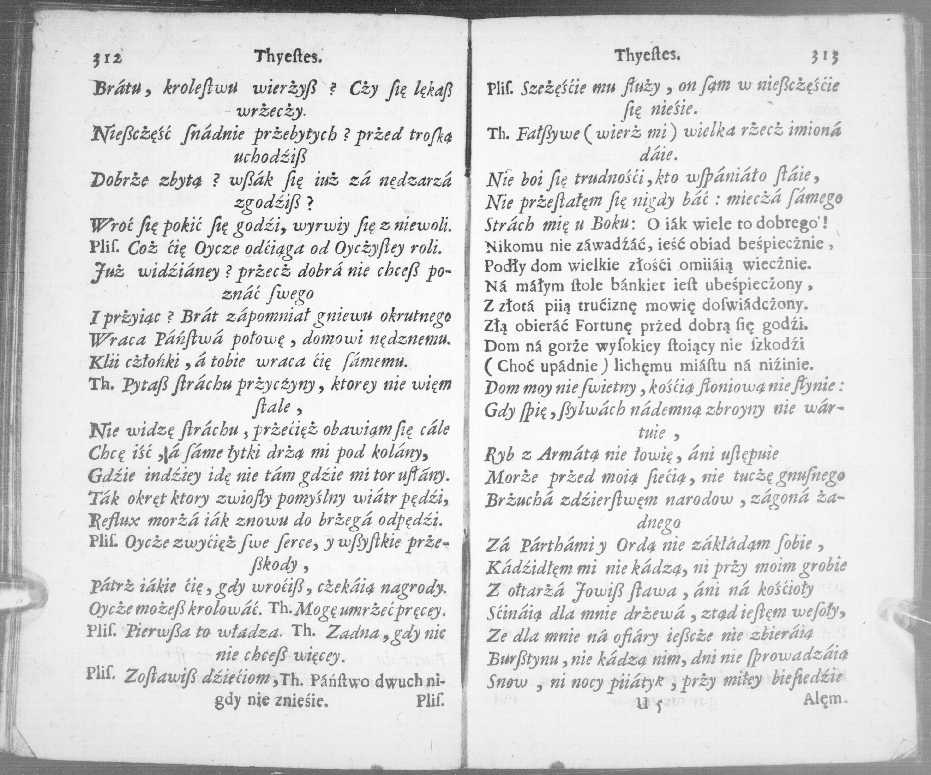 312 Thyeſtes.
Brátu, kroleſtwu wierżyß ? Cży ſię lękaß
wrżecży.
Nießcżęść ſnádnie przebytych ? przed troſką
uchodźiß
Dobrże zbytą ? wßák ſię iuż zá nędzarzá
zgodźiß ?
Wroć ſię pokić ſię godźi, wyrwiy ſię z niewoli.
Pliſ. Coż ćię Oycze odćiąga od Oycżyſtey roli.
Już widźiáney ? przecż dobrá nie chceß po-
znáć ſwego
I przyiąc ? Brát zápomniał gniewu okrutnego
Wraca Páńſtwá połowę, domowi nędznemu.
Klii cżłońki, á tobie wraca ćię ſámemu.
Th. Pytaß ſtráchu przycżyny, ktorey nie więm
ſtale,
Nie widzę ſtráchu, przećięż obawiąm ſię cále
Chcę iść, á ſáme łytki drżą mi pod kolány,
Gdźie indźiey idę nie tám gdźie mi tor uſtány.
Ták okręt ktory zwioſły pomyślny wiátr pędźi,
Reflux morzá iák znowu do brzegá odpędźi.
Pliſ. Oycże zwyćięż ſwe ſerce, y wßyſtkie prze-
ßkody,
Pátrz iákie ćię, gdy wroćiß, cżekáią nagrody.
Oycże możeß krolowáć. Th. Mogę umrzeć pręcey.
Pliſ. Pierwßa to władza. Th. Zadna, gdy nic
nie chceß więcey.
Pliſ. Zoſtawiß dźiećiom, Th. Páńſtwo dwuch ni-
gdy nie znieśie. Pliſ.
Thyeſtes. 313
Pliſ. Szcżęśćie mu ſłuży, on ſąm w nießcżęśćie
ſię nieśie.
Th. Fałßywe ( wierż mi ) wielka rzecż imioná
dáie.
Nie boi ſię trudnośći, kto wſpániáło ſtáie,
Nie przeſtałęm ſię nigdy báć : miecżá ſámego
Strách mię u Boku: O iák wiele to dobrego !
Nikomu nie záwadźáć, ieść obiad beśpiecżnie,
Podły dom wielkie złośći omiiáią wiecżnie.
Ná máłym ſtole bánkiet ieſt ubeśpiecżony,
Z złotá piią trućiznę mowię doſwiádcżony.
Złą obieráć Fortunę przed dobrą ſię godźi.
Dom ná gorże wyſokiey ſtoiący nie ſzkodźi
( Choć upádnie ) lichęmu miáſtu ná niźinie.
Dom moy nie ſwietny, kośćią ſłoniową nie ſłynie :
Gdy ſpię, ſyłwách nádemną zbroyny nie wár-
tuie,
Ryb z Armátą nie łowię, áni uſtępuie
Morże przed moią ſiećią, nie tucżę gnuſnego
Brzuchá zdźierſtwęm narodow, zágoná ża-
dnego
Zá Párthámi y Ordą nie zákłádąm ſobie,
Kádźidłęm mi nie kádzą, ni przy moim grobie
Z ołtarżá Jowiß ſtawa, áni ná kośćioły
Sćináią dla mnie drzewá, ztąd ieſtęm weſoły,
Ze dla mnie ná ofiáry ieſzcże nie zbieráią
Burßtynu, nie kádzą nim, áni nie ſprowadzáią
Snow, ni nocy piiátyk, przy miłey bieſiedźie
U 5 Alęm.